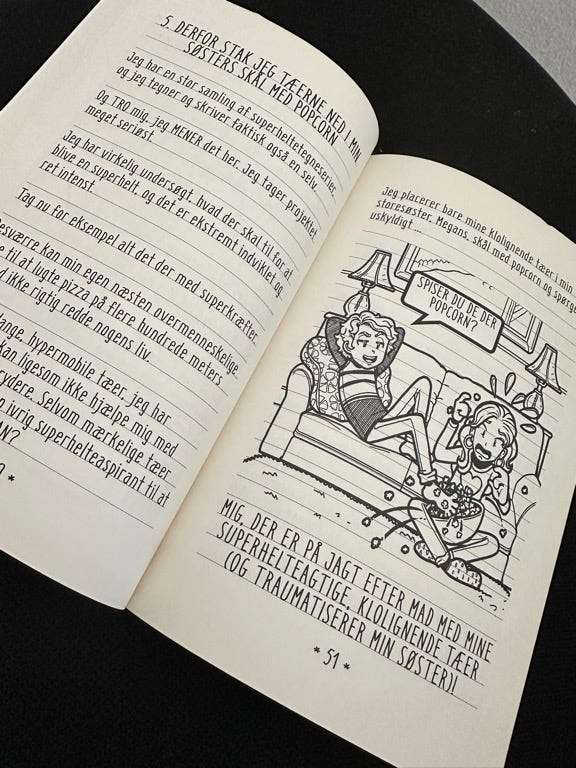 5. DERFOR STAK JEG TÆERNE NED I MIN
SØSTERS SKÅL MED POPCORN
Jeg har en stor samling af superheltetegneserier,
og jeg tegner og skriver faktisk også en selv.
Og TRO mig, jeg MENER det her. Jeg tager projektet
meget seriøst.
Jeg har virkelig undersøgt, hvad der skal til for at
blive en superhelt, og det er ekstremt indviklet og
ret intenst.
Tag nu for eksempel alt det der med superkræfter.
Desværre kan min egen næsten overmenneskelige,
til at lugte pizza på flere hundrede meters
ikke rigtig redde nogens liv.
lange, hypermobile tæer, jeg har
kan ligesom ikke hjælpe mig med
Selvom mærkelige tæer
ivrig superhelteaspirant til at
Jeg placerer bare mine klolignende tæer i min
storesøster, Megans, skål med popcorn og spørger
uskyldigt ...
SPISER DU DE DER
POPCORN?
MIG, DER ER PÅ JAGT EFTER MAD MED MINE
SUPERHELTEAGTIGE, KLOLIGNENDE TÆER
(OG TRAUMATISERER MIN SØSTER)!
* 51 *